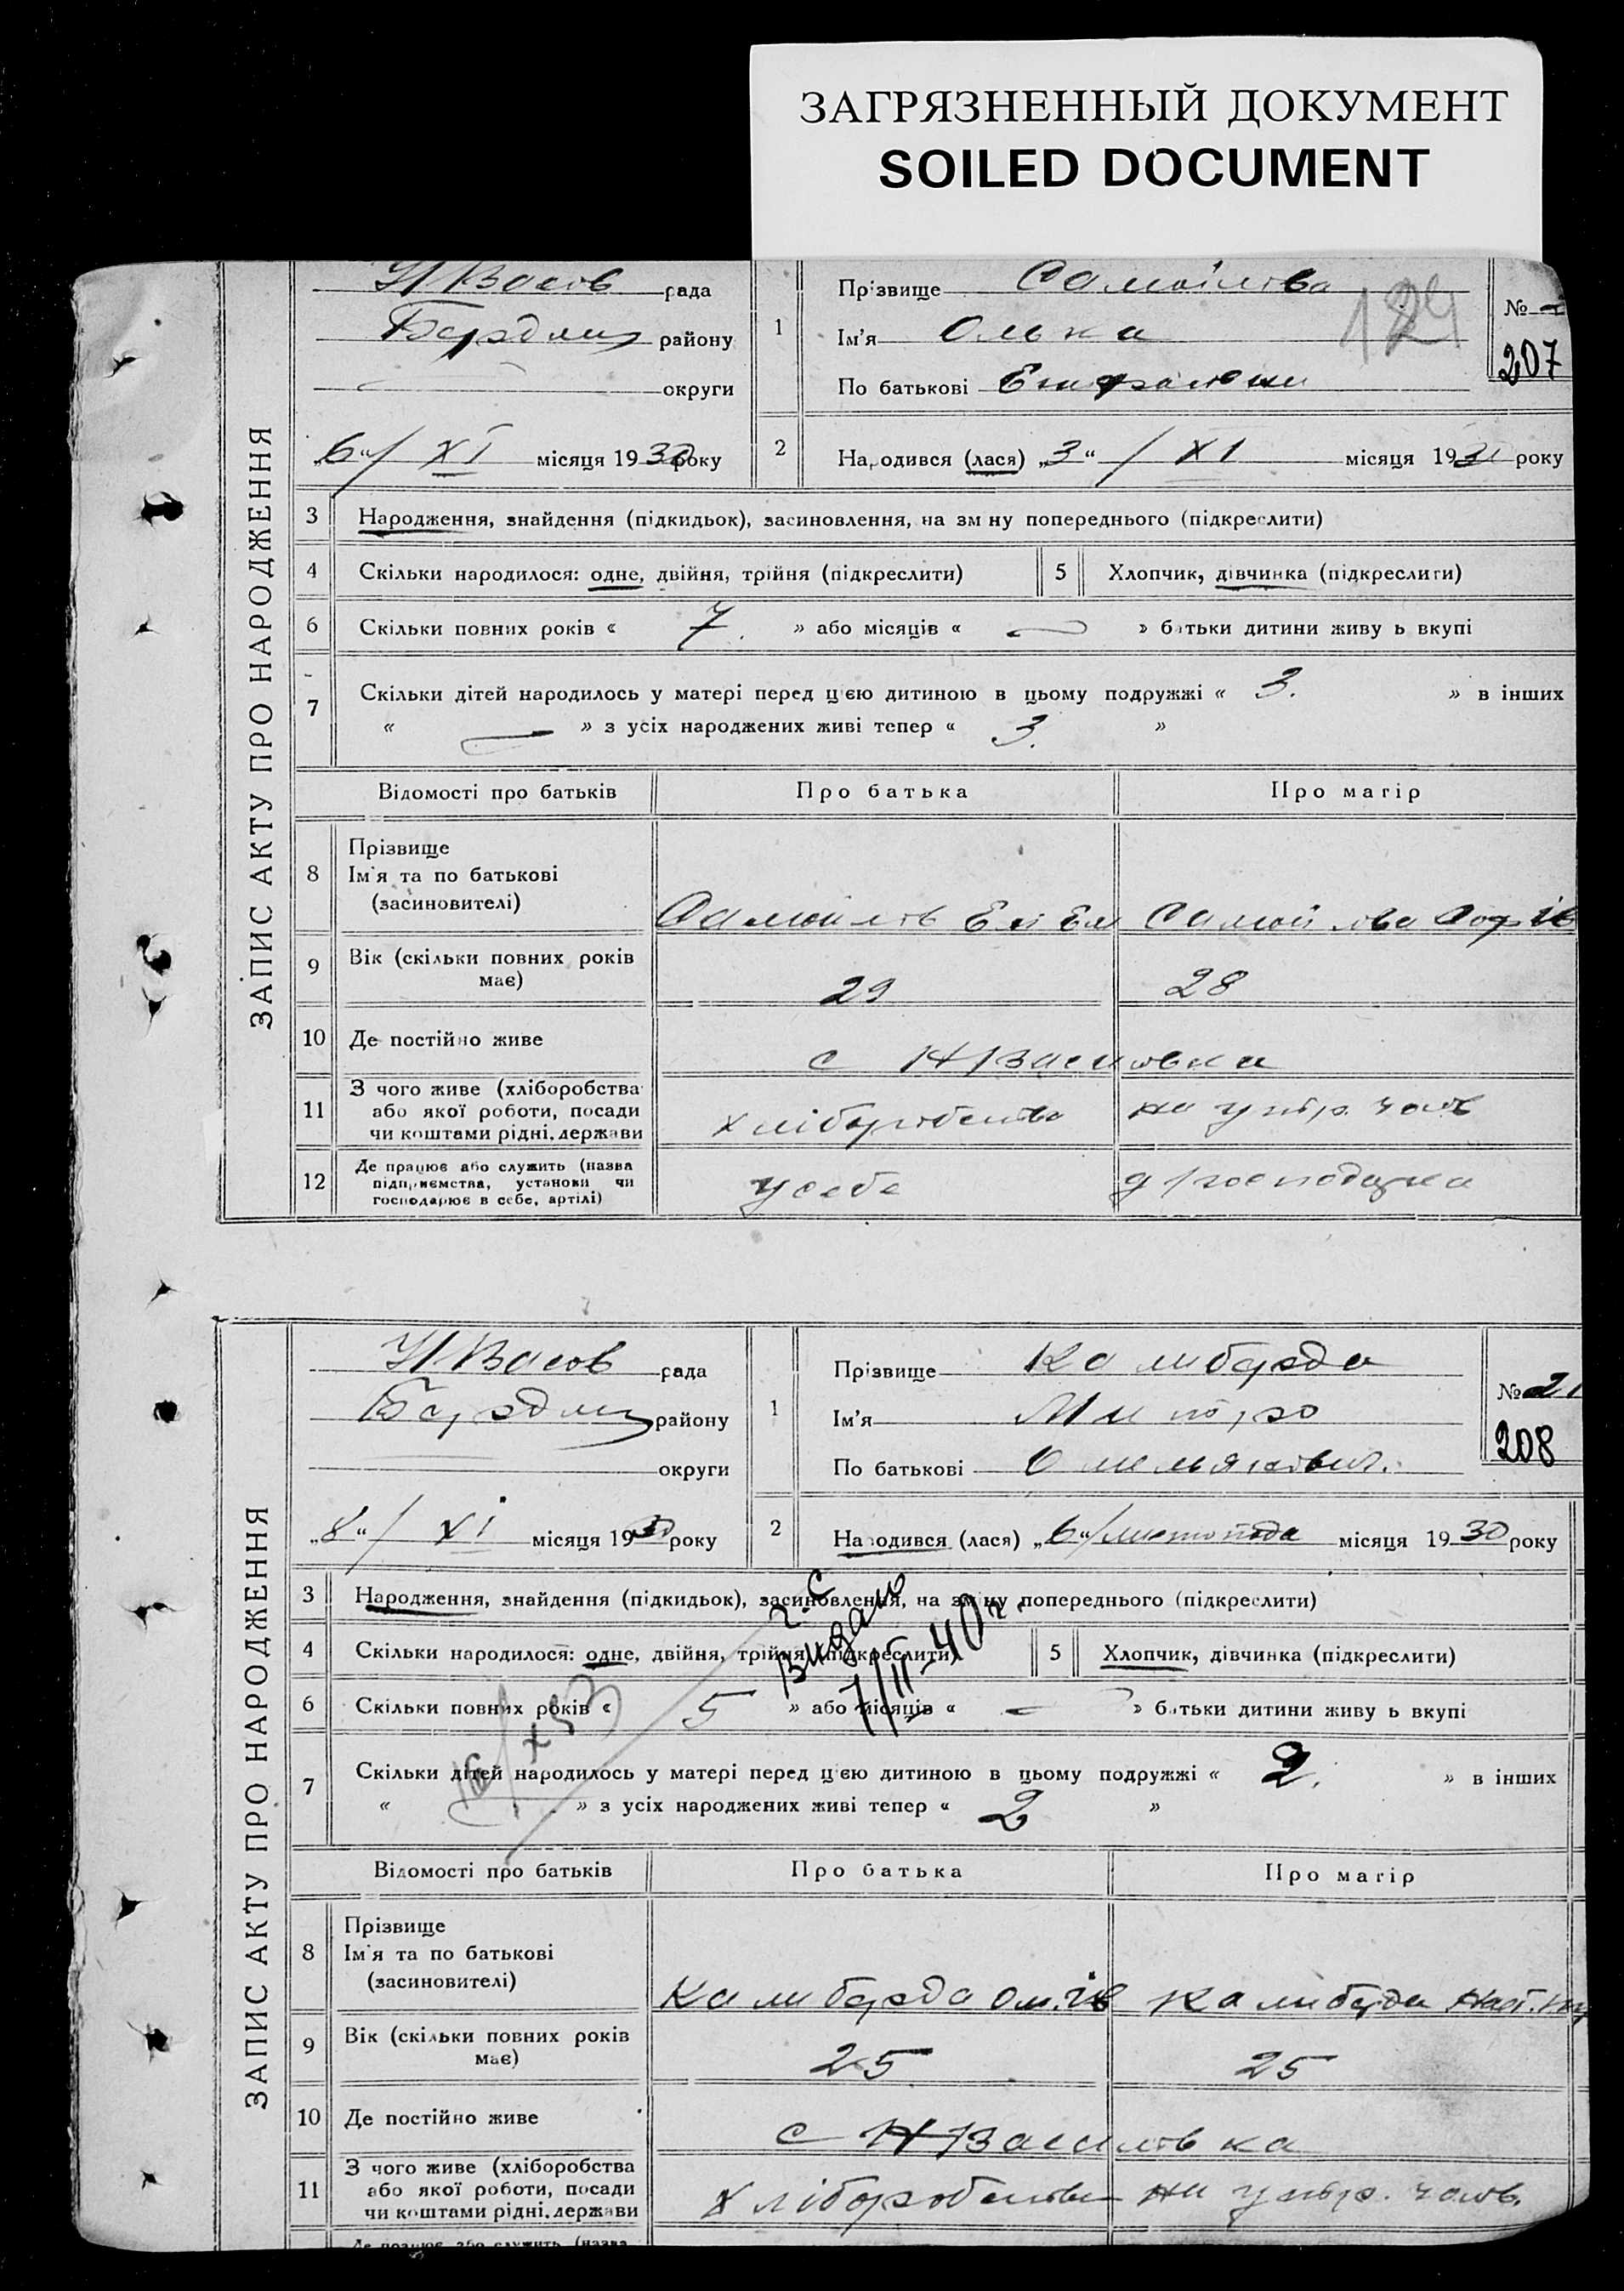 ЗАГРЯЗНЕННЫЙ ДОКУМЕНТ
SOILED DOCUMENT
ЗАПИС АКТУ ПРО НАРОДЖЕННЯ
Н Васов рада
району
округи
„6“/ XI місяця 1930 року
1
Прізвище Самойлова
Ім'я Олька
По батькові
124
№
207
2
Народився (лася) „3“ / XI місяця 1930 року
3 Народження, знайдення (підкидьок), засиновлення, на зміну попереднього (підкреслити)
4 Скільки народилося: одне, двійня, трійня (підкреслити)
5 Хлопчик, дівчинка (підкреслити)
6 Скільки повних років « 7. » або місяців « — » батьки дитини живуть вкупі
7 Скільки дітей народилось у матері перед цією дитиною в цьому подружжі « 3. » в інших
« — » з усіх народжених живі тепер « 3. »
Відомості про батьків Про батька Про матір
8 Прізвище
Ім'я та по батькові
(засиновителі)
Самойлов Ем Ем Самойлова
9 Вік (скільки повних років
має)
29 28
10 Де постійно живе с Н Василовка
11 З чого живе (хліборобства
або якої роботи, посади
чи коштами рідні, держави
хліборобство на утр. чолов
12 Де працює або служить (назва
підприємства, установи чи
господарює в себе, артілі)
у себе д/господарка
ЗАПИС АКТУ ПРО НАРОДЖЕННЯ
Н Васов рада
району
округи
„8“/ XI місяця 1930 року
1
Прізвище Калиберда
Ім'я Митро
По батькові Омельянович.
№ 21
208
2
Народився (лася) „6“/листопада місяця 1930 року
3 Народження, знайдення (підкидьок), засиновлення, на зміну попереднього (підкреслити)
4 Скільки народилося: одне, двійня, трійня (підкреслити)
5 Хлопчик, дівчинка (підкреслити)
Видано
7/II-40 г.
6 Скільки повних років « 5 » або місяців « — » батьки дитини живуть вкупі
7 Скільки дітей народилось у матері перед цією дитиною в цьому подружжі « 2. » в інших
« — » з усіх народжених живі тепер « 2 »
Відомості про батьків Про батька Про матір
8 Прізвище
Ім'я та по батькові
(засиновителі)
Калиберда Ом. Ів Калиберда Наст.
9 Вік (скільки повних років
має)
25 25
10 Де постійно живе с Н Василовка
11 З чого живе (хліборобства
або якої роботи, посади
чи коштами рідні, держави
хліборобство на утр. чолов.
Де працює або служить (назва